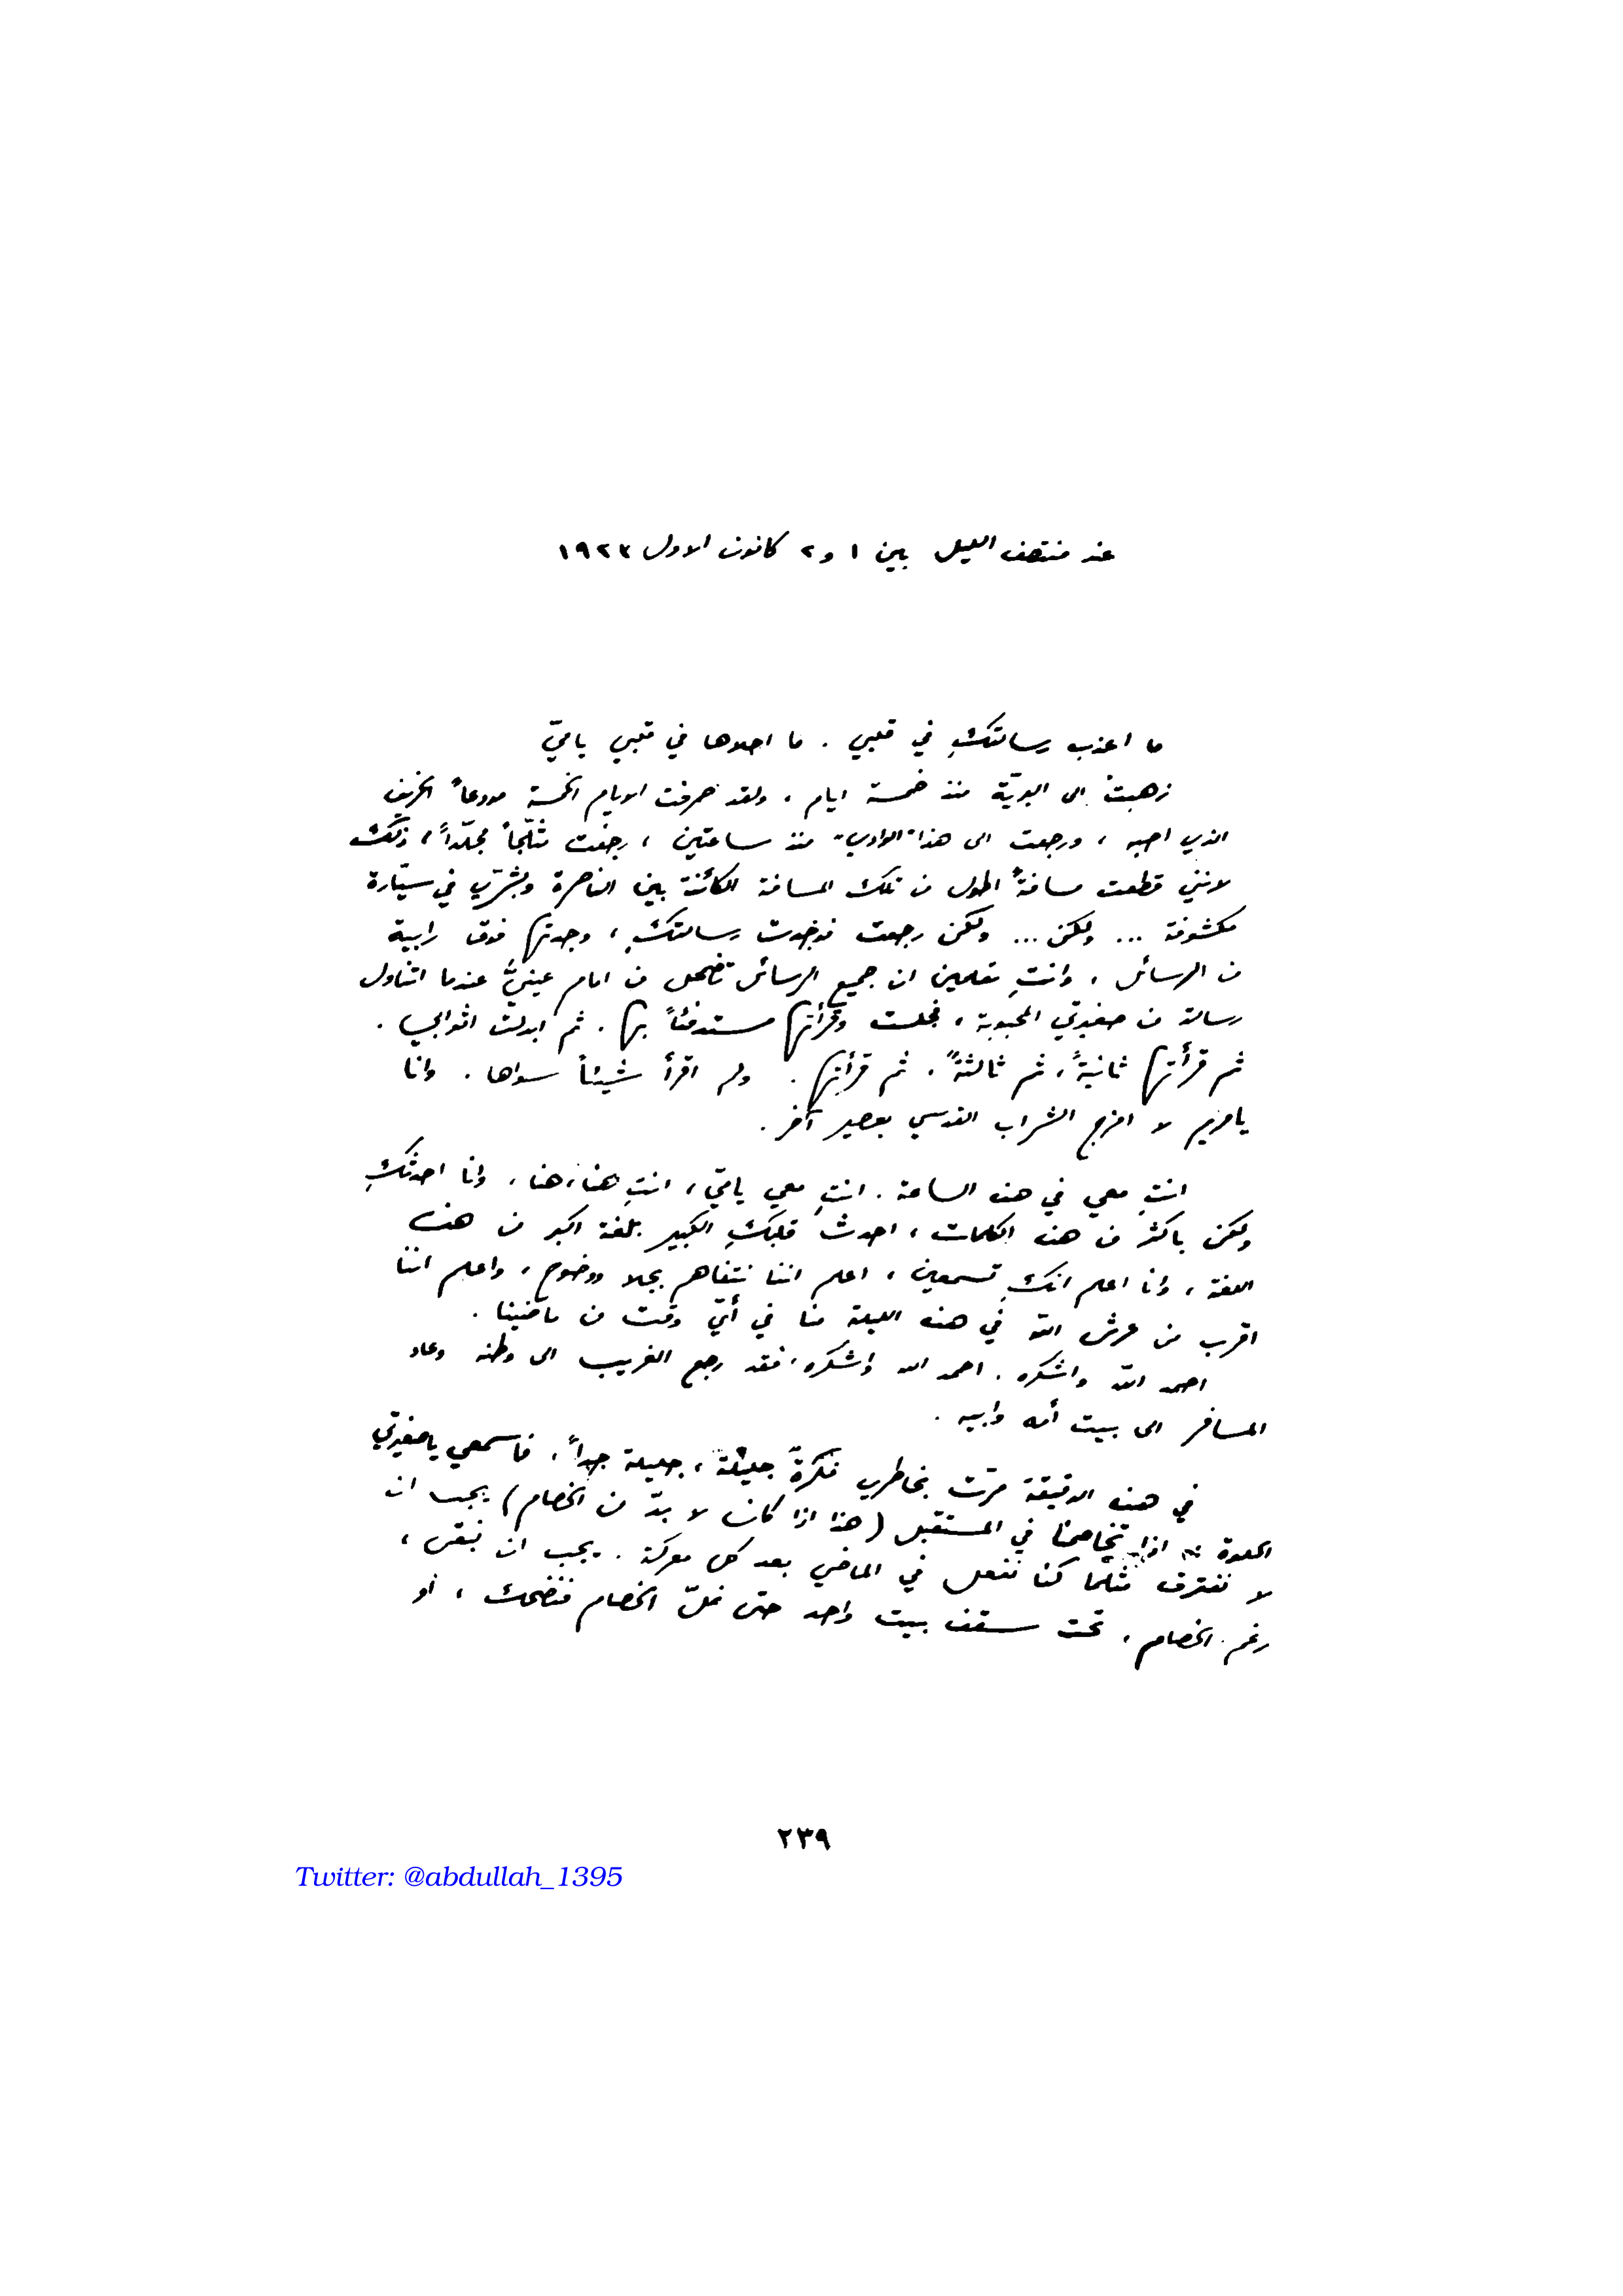 عند منتصف الليل بين ١ و٢ كانون الاول ١٩٢٣
ما اعذب رسالتكِ في قلبي . ما احلاها في قلبي يا ميّ
ذهبتُ الى البريّة منذ خمسة ايام ، ولقد صرفت الايام الخمسة مودعاً الخريف
الذي احبه ، ورجعت الى هذا "الوادي" منذ ساعتين ، رجعت مثلّجاً مجلّداً ، ذلك
لانني قطعت مسافةً اطول من تلك المسافة الكائنة بين الناصرة وبشرّي في سيّارة
مكشوفة ... ولكن ... ولكن رجعت فوجدت رسالتكِ ، وجدتها فوق رابية
من الرسائل ، وانتِ تعلمين ان جميع الرسائل تضمحل من امام عينيَّ عندما اتناول
رسالة من صغيرتي المحبوبة ، فجلست وقرأتها مستدفئاً بها . ثم ابدلت اثوابي .
ثم قرأتها ثانيةً ، ثم ثالثةً ، ثم قرأتها . ولم اقرأ شيئاً سواها . وانا
يا مريم لا امزج الشراب القدسي بعصير آخر .
انتِ معي في هذه الساعة . انتِ معي يا ميّ ، انتِ هنا ، هنا ، وانا احدثكِ
ولكن باكثر من هذه الكلمات ، احدث قلبكِ الكبير بلغة اكبر من هذه
اللغة ، وانا اعلم انكِ تسمعين ، اعلم اننا نتفاهم بجلا ووضوح ، واعلم اننا
اقرب من عرش الله في هذه الليلة منا في أيّ وقت من ماضينا .
احمد الله واشكره . احمد الله واشكره ، فقد رجع الغريب الى وطنه وعاد
المسافر الى بيت أمه وابيه .
في هذه الدقيقة مرّت بخاطري فكرةٌ جليلة ، جليلة جداً . فاسمعي يا صغيرتي
الحلوة : اذا تخاصمنا في المستقبل (هذا اذا كان لا بدّ من الخصام) يجب ان
لا نفترق مثلما كنا نفعل في الماضي بعد كل معركة . يجب ان نبقى ،
رغم الخصام ، تحت سقف بيت واحد حتى نملّ الخصام فنضحك ، او
٢٣٩
Twitter: @abdullah_1395